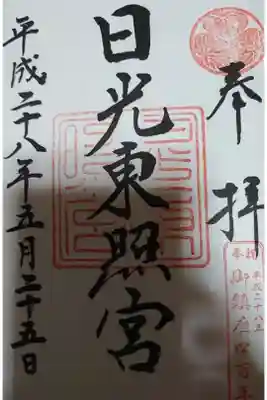 奉拝
日光東照宮
平成二十八年五月二十五日